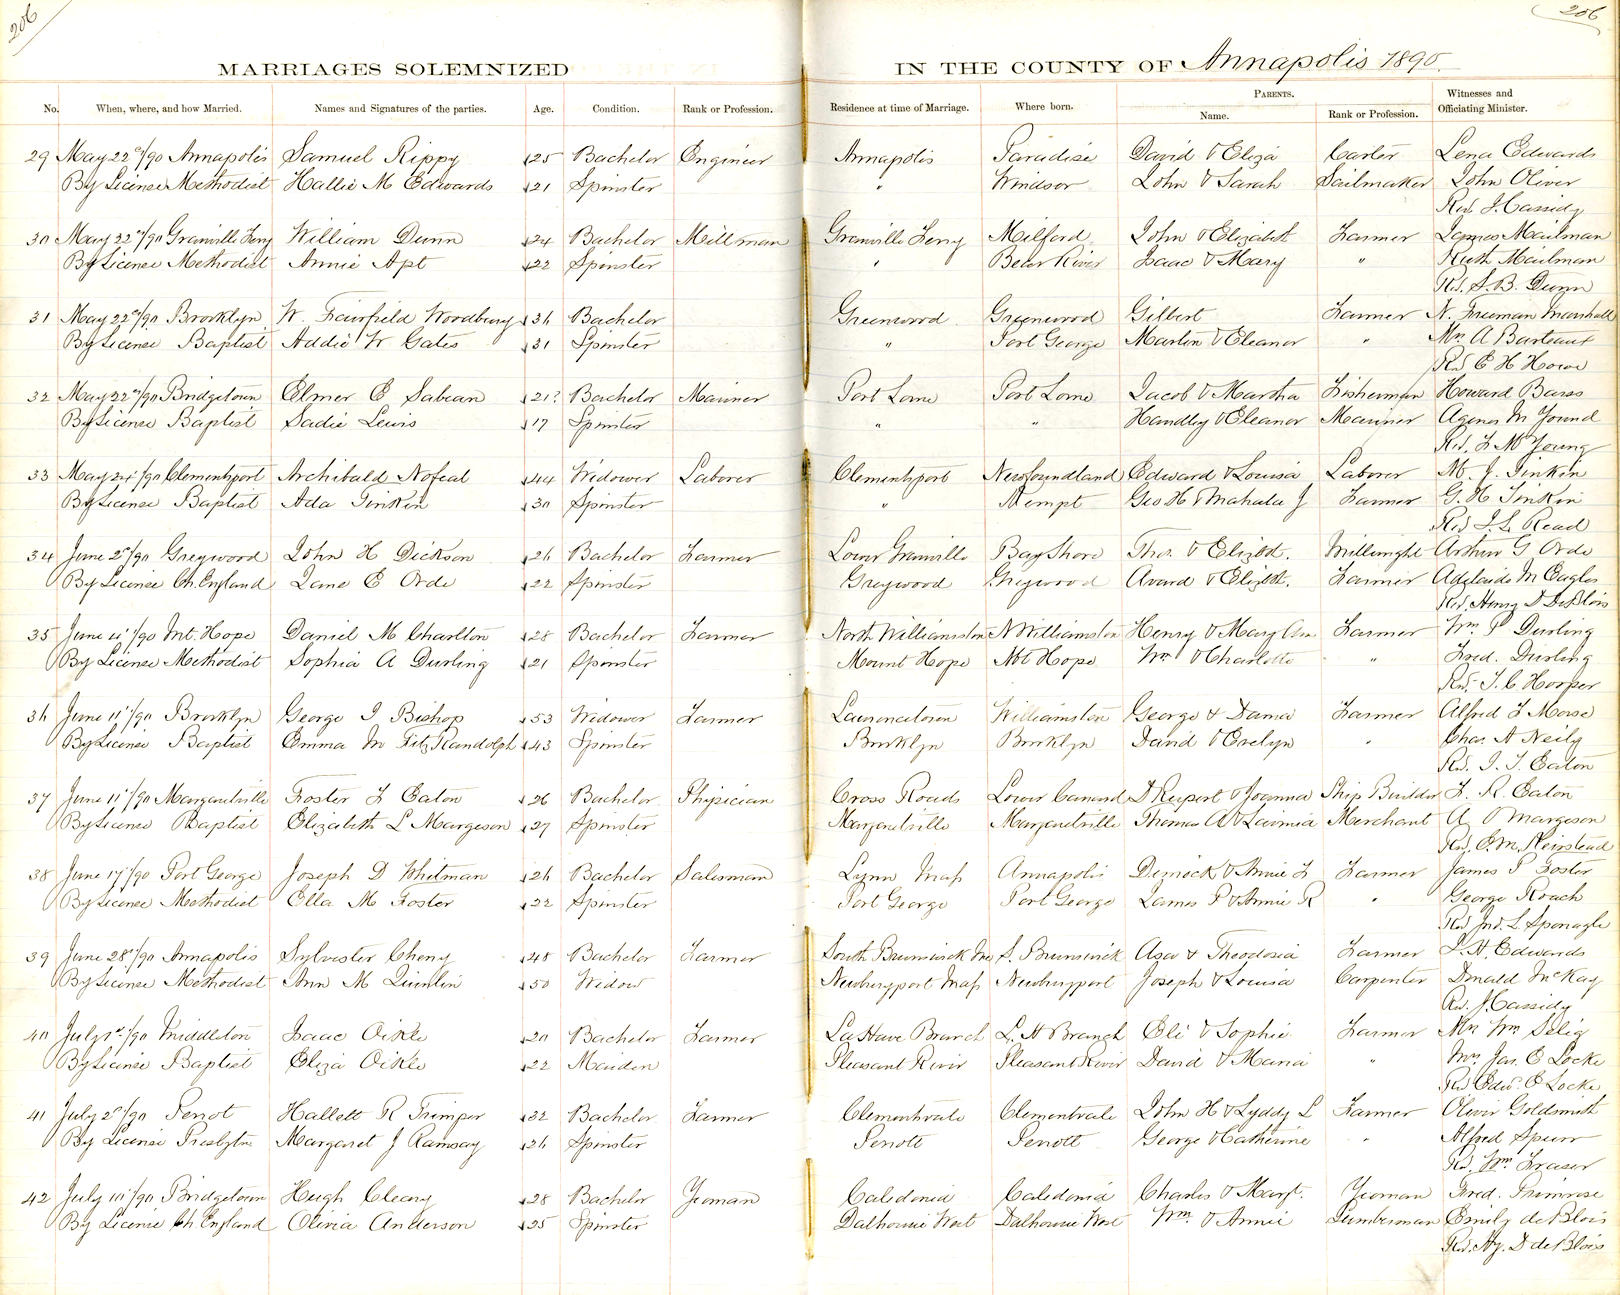 206
206
MARRIAGES SOLEMNIZED IN THE COUNTY OF Annapolis 1890.
No. When, where, and how Married. Names and Signatures of the parties. Age. Condition. Rank or Profession. Residence at time of Marriage. Where born. PARENTS. Name. Rank or Profession. Witnesses and Officiating Minister.
29 May 22nd/90 Annapolis Samuel Rippy 25 Bachelor Engineer Annapolis Paradise David & Eliza Carter Lena Edwards
By License Methodist Hallie M Edwards 21 Spinster " Windsor John & Sarah Sailmaker John Oliver
Rev. J. Cassidy
30 May 22nd/90 Granville Ferry William Dunn 24 Bachelor Millman Granville Ferry Milford John & Elizabeth Farmer James Mailman
By License Methodist Annie Apt 22 Spinster " Bear River Isaac & Mary " Ruth Mailman
Rd. S. B. Dunn
31 May 22nd/90 Brooklyn W. Fairfield Woodbury 36 Bachelor Greenwood Greenwood Gilbert Farmer N. Freeman Marshall
By License Baptist Addie W Gates 31 Spinster " Port George Martin & Eleanor " Mrs A Barteaux
Rd E H Howe
32 May 22nd/90 Bridgetown Elmer E Sabean 21? Bachelor Mariner Port Lorne Port Lorne Jacob & Martha Fisherman Howard Barss
By License Baptist Sadie Lewis 17 Spinster " " Handley & Eleanor Mariner Agenes M Young
Rd. F. M. Young
33 May 24/90 Clementsport Archibald Nofeat 44 Widower Laborer Clementsport Newfoundland Edward & Louisa Laborer M. J. Jinkin
By License Baptist Ada Jinkin 30 Spinster " Kempt Geo H & Mahala J Farmer G. H Jinkin
Rd J. L. Read
34 June 2nd/90 Greywood John H Dickson 26 Bachelor Farmer Lower Granville Bay Shore Thos. & Elizbt. Millwright Arthur G Orde
By License Ch. England Jane E Orde 22 Spinster Greywood Greywood Avard & Elizbt. Farmer Adelaide M Eagles
Rd. Henry D DeBlois
35 June 11/90 Mt. Hope Daniel M Charlton 28 Bachelor Farmer North Williamston N Williamston Henry & Mary Ann Farmer Wm P Durling
By License Methodist Sophia A Durling 21 Spinster Mount Hope Mt Hope Wm & Charlotte " Fred. Durling
Rd. T. C Hooper
36 June 11/90 Brooklyn George I Bishop 53 Widower Farmer Lawrencetown Williamston George & Dama Farmer Alfred F Morse
By License Baptist Emma M Fitz Randolph 43 Spinster Brooklyn Brooklyn David & Evelyn " Chas. A Neily
Rd. I. T. Eaton
37 June 11/90 Margaretville Foster F Eaton 26 Bachelor Physician Cross Roads Lower Canard D Rupert & Joanna Ship Builder F. R. Eaton
By License Baptist Elizabeth L Margeson 27 Spinster Margaretville Margaretville Thomas A & Lavinia Merchant A O Margeson
Rd. E. M. Keirstead
38 June 17/90 Port George Joseph D Whitman 26 Bachelor Salesman Lynn Mass Annapolis Dimock & Annie F Farmer James P Foster
By License Methodist Ella M Foster 22 Spinster Port George Port George James P & Annie R " George Roach
Rd Jno. L Sponagle
39 June 28/90 Annapolis Sylvester Cheny 48 Bachelor Farmer South Brunswick Me S. Brunswick Asa & Theodosia Farmer J. H. Edwards
By License Methodist Ann M Quinlin 50 Widow Newburyport Mass Newburyport Joseph & Louisa Carpenter Donald McKay
Rd. J. Cassidy
40 July 1st/90 Middleton Isaac Oikle 20 Bachelor Farmer LaHave Branch L. H Branch Eli & Sophie Farmer Mr Wm Selig
By License Baptist Eliza Oikle 22 Maiden Pleasant River Pleasant River David & Maria " Mrs Jas. E Locke
Rd Edw. E Locke
41 July 2nd/90 Perrot Hallett R Trimper 32 Bachelor Farmer Clementvale Clementvale John H & Lyddy L Farmer Oliver Goldsmith
By License Presbytn Margaret J Ramsay 26 Spinster Perrott Perrott George & Catherine " Alfred Spurr
Rd. Wm. Fraser
42 July 10/90 Bridgetown Hugh Cleary 28 Bachelor Yeoman Caledonia Caledonia Charles & Margt. Yeoman Fred. Primrose
By License Ch England Olivia Anderson 35 Spinster Dalhousie West Dalhousie West Wm. & Annie Lumberman Emily deBlois
Rd. Hy. D deBlois